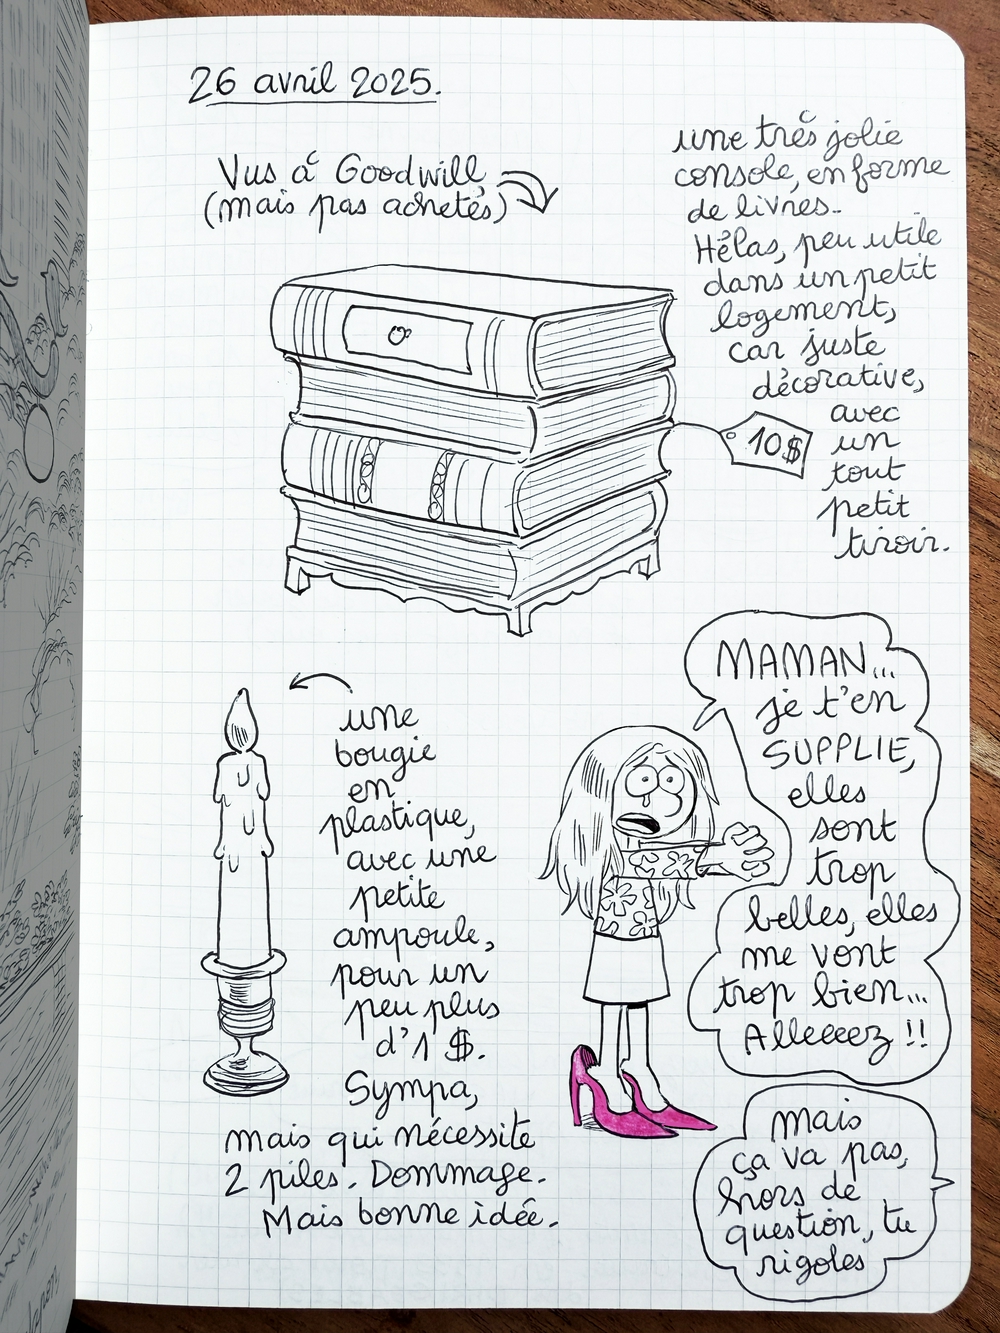 26 avril 2025.
Vus à Goodwill
(mais pas achetés)
une très jolie
console, en forme
de livres..
Hélas, peu utile
dans un petit
logement,
car juste
décorative,
avec
un
tout
petit
tiroir.
10$
une
bougie
en
plastique,
avec une
petite
ampoule,
pour un
peu plus
d'1 $.
Sympa,
mais qui nécessite
2 piles. Dommage.
Mais bonne idée.
MAMAN...
je t'en
SUPPLIE,
elles
sont
trop
belles, elles
me vont
trop bien...
Alleeeez !!
mais
ça va pas,
hors de
question, tu
rigoles